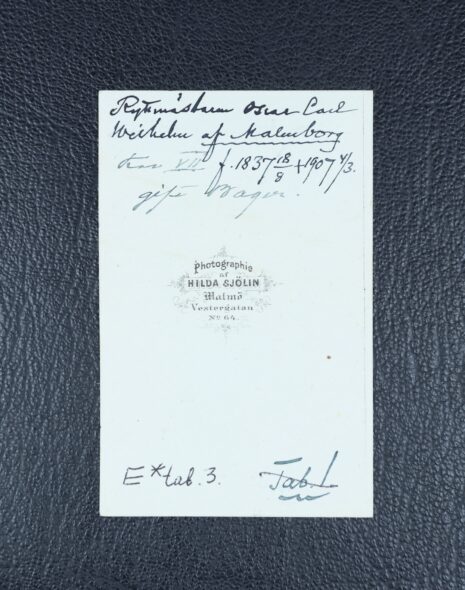 Ryttmästaren Oscar Carl
Wilhelm af Malmborg
XVII f. 1837 18/8 † 1907 4/3.
gift
Photographie
af
HILDA SJÖLIN
Malmö
Vestergatan
No 64.
E* tab. 3.
Tab. 1